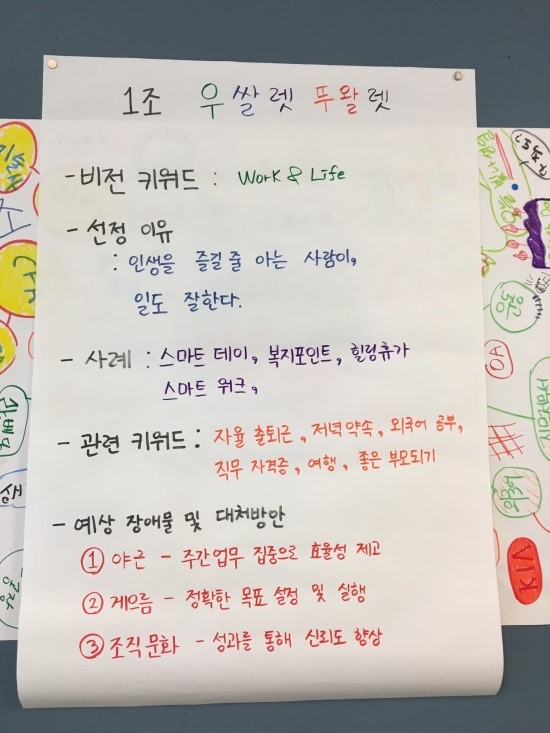 1조 우쌀렛 뚜왈렛
- 비전 키워드 : Work & Life
- 선정 이유
: 인생을 즐길 줄 아는 사람이,
일도 잘한다.
- 사례 : 스마트 데이, 복지포인트, 힐링휴가
스마트 워크,
- 관련 키워드 : 자율 출퇴근, 저녁약속, 외국어 공부,
직무 자격증, 여행, 좋은 부모되기
- 예상 장애물 및 대처방안
① 야근 - 주간업무 집중으로 효율성 제고
② 게으름 - 정확한 목표 설정 및 실행
③ 조직문화 - 성과를 통해 신뢰도 향상